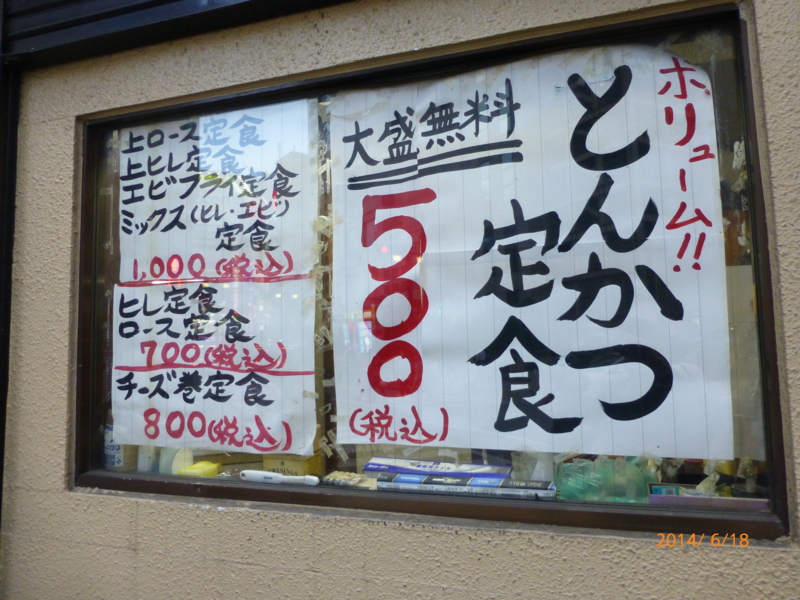 ボリューム!!
とんかつ
定食
大盛無料
500
(税込)
上ロース定食
上ヒレ定食
エビフライ定食
ミックス(ヒレ・エビ)
定食
1,000(税込)
ヒレ定食
ロース定食
700(税込)
チーズ巻定食
800(税込)
2014/ 6/18